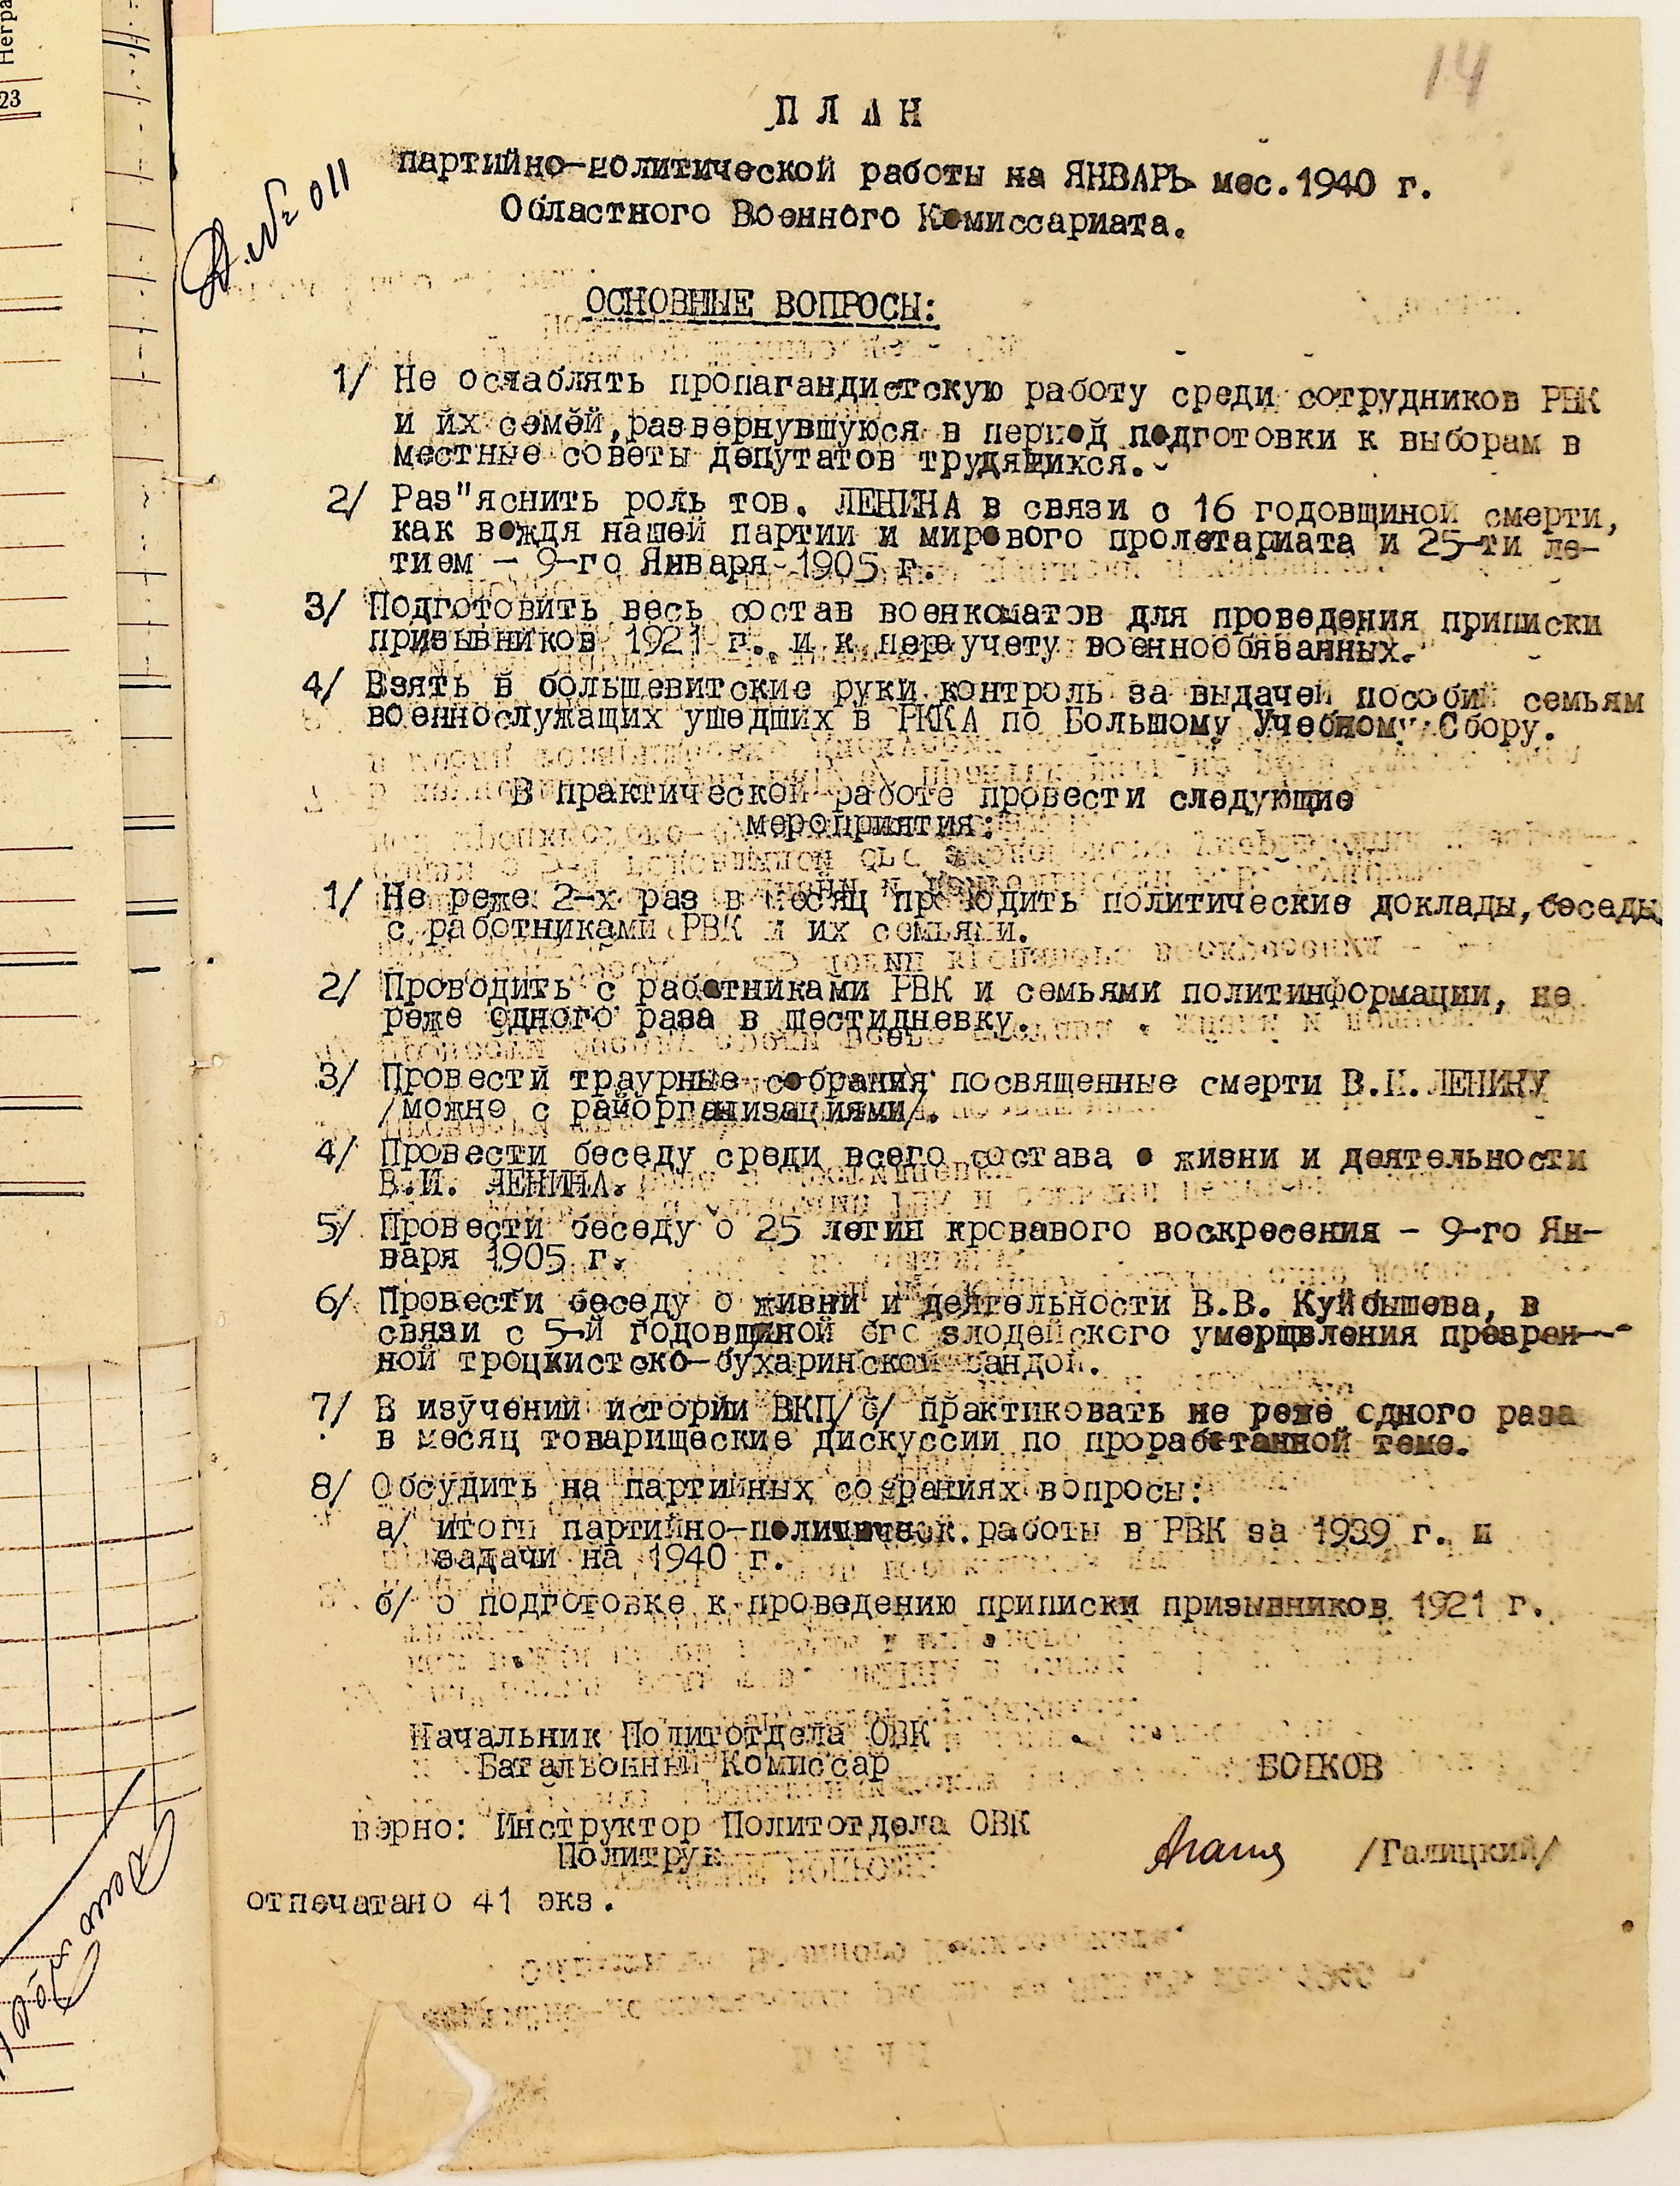 Негра
23
14
Д. № 011
П Л А Н
партийно-политической работы на ЯНВАРЬ мес. 1940 г.
Областного Военного Комиссариата.
ОСНОВНЫЕ ВОПРОСЫ:
1/ Не ослаблять пропагандистскую работу среди сотрудников РВК
и их семей, развернувшуюся в период подготовки к выборам в
местные советы депутатов трудящихся.
2/ Раз"яснить роль тов. ЛЕНИНА в связи с 16 годовщиной смерти,
как вождя нашей партии и мирового пролетариата и 25-ти ле-
тием - 9-го Января 1905 г.
3/ Подготовить весь состав военкоматов для проведения приписки
призывников 1921 г. и к переучету военнообязанных.
4/ Взять в большевитские руки контроль за выдачей пособий семьям
военнослужащих ушедших в РККА по Большому Учебному Сбору.
В практической работе провести следующие
мероприятия:
1/ Не реже 2-х раз в месяц проводить политические доклады, беседы
с работниками РВК и их семьями.
2/ Проводить с работниками РВК и семьями политинформации, не
реже одного раза в шестидневку.
3/ Провести траурные собрания посвященные смерти В.И. ЛЕНИНУ
/можно с райорганизациями/.
4/ Провести беседу среди всего состава о жизни и деятельности
В.И. ЛЕНИНА.
5/ Провести беседу о 25 летии кровавого воскресения - 9-го Ян-
варя 1905 г.
6/ Провести беседу о жизни и деятельности В.В. Куйбышева, в
связи с 5-й годовщиной его злодейского умерщвления презрен-
ной троцкистско-бухаринской бандой.
7/ В изучении истории ВКП/б/ практиковать не реже одного раза
в месяц товарищеские дискуссии по проработанной теме.
8/ Обсудить на партийных собраниях вопросы:
а/ итоги партийно-политическ. работы в РВК за 1939 г. и
задачи на 1940 г.
б/ о подготовке к проведению приписки призывников 1921 г.
Начальник Политотдела ОВК
Батальонный Комиссар БОЙКОВ
верно: Инструктор Политотдела ОВК
Политрук /Галицкий/
отпечатано 41 экз.